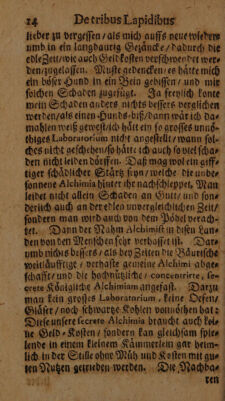 24 De tribus Lapidibus
lieber zu vergessen / als mich auffs neue wieder
umb in ein langbaurig Gezäncke / dadurch die
edle Zeit / wie auch Geld kosten verschwendet wer-
den / zugelassen. Muste gedencken / es hätte mich
ein böser Hund in ein Bein gebissen / und mir
solchen Schaden zugefügt. Ja freylich konte
mein Schaden anders nichts bessers verglichen
werden / als einen Hunds-biß / dann wär ich da-
mahlen weiß gewest / ich hätt ein so grosses unnö-
thiges Laboratorium nicht angestellt / wann sol-
ches nicht geschehen / so hätt ich auch so viel scha-
den nicht leiden dörffen. Daß mag wol ein giff-
tiger schädlicher Stärtz seyn / welche die unbe-
sonnene Alchimia hinter ihr nachschleppet. Man
leidet nicht allein Schaden an Gute / und son-
derlich auch an der edlen unvergleichlichen Zeit /
sondern man wird auch von dem Pödel verach-
tet. Dann der Nahm Alchimist in disen Lan-
den von den Menschen sehr verhasset ist. Dar-
umb nichts bessers / als bey Zeiten die Bäurische
weitläufftige / verhaste gemeine Alchimi abge-
schafft / und die hochnützliche / concentrirte, se-
crete Königliche Alchimiam angefast. Darzu
man kein grosses Laboratorium, keine Oefen /
Gläser / noch schwartze Kohlen vonnöthen hat:
Diese unsere secrete Alchimia braucht auch kei-
ne Geld-Kosten / sondern kan gleichsam spie-
lende in einem kleinem Kämmerlein gar heim-
lich in der Stille ohne Müh und Kosten mit gu-
ten Nutzen getrieben werden. Die Nachba-
ren